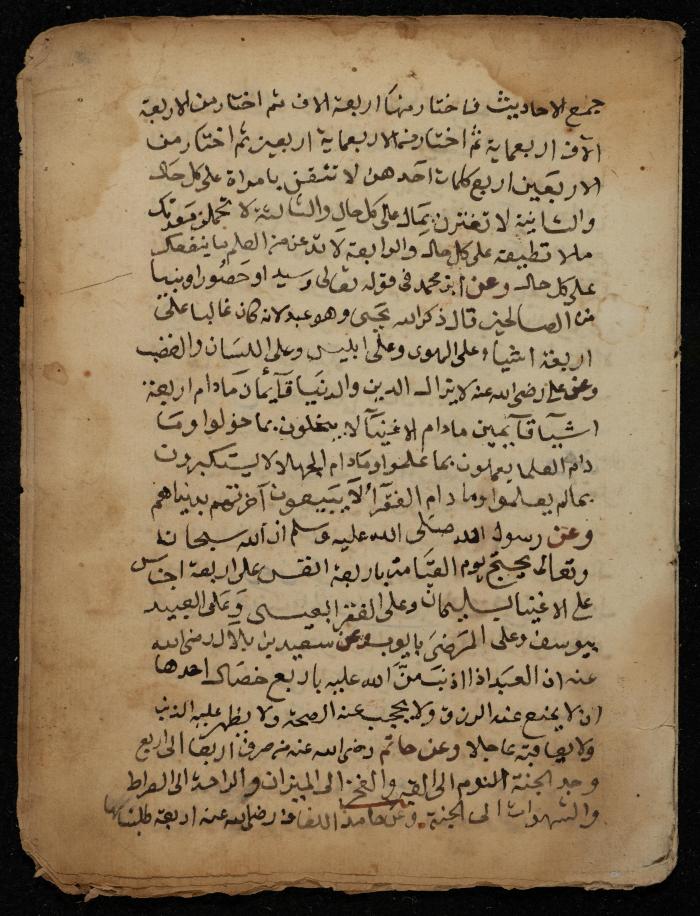 جمع الاحاديث فاختار منها اربعة الاف ثم اختار من الاربعة
الاف اربعماية ثم اختار من الاربعماية اربعين ثم اختار من
الاربعين اربع كلمات احدهن لا تثقن بامراة على كل حال
والثانية لا تغترن بمال على كل حال والثالثة لا تحمل معدتك
ملا تطيقه على كل حال والرابعة لا تدعن من العلم ما ينفعك
على كل حال وعن ابن محمد فى قوله تعالى وسيدا وحصورا ونبيا
من الصالحين قال ذكر الله يحيى وهو عبد لانه كان غالبا على
اربعة اشيا على الهوى وعلى ابليس وعلى اللسان والغضب
وعن على رضى الله عنه لا يزال الدين والدنيا قآيمان ما دام اربعة
اشيآ قآيمين ما دام الاغنيآ لا يبخلون بما خولوا وما
دام العلما يعملون بما علموا وما دام الجهلا لا يستكبرون
بما لم يعلموا وما دام الفقرآ لا يبيعون آخرتهم بدنياهم
وعن رسول الله صلى الله عليه وسلم ان الله سبحانه
وتعالى يحتج يوم القيامة باربعة انفس على اربعة اجناس
على الاغنيا بسليمان وعلى الفقرا بعيسى وعلى العبيد
بيوسف وعلى المرضى بايوب وعن سعيد بن بلال رضى الله
عنه ان العبد اذا اذنب منّ الله عليه باربع خصال احدها
ان لا يمنع عنه الرزق ولا يحجب عنه الصحة ولا يظهر عليه الذنب
ولا يعاقبه عاجلا وعن حاتم رضى الله عنه من صرف اربعا الى اربع
وجد الجنة النوم الى القبر والفخر الى الميزان والراحة الى الصراط
والشهوات الى الجنة وعن حامد اللفاف رضى الله عنه اربعة طلبناها